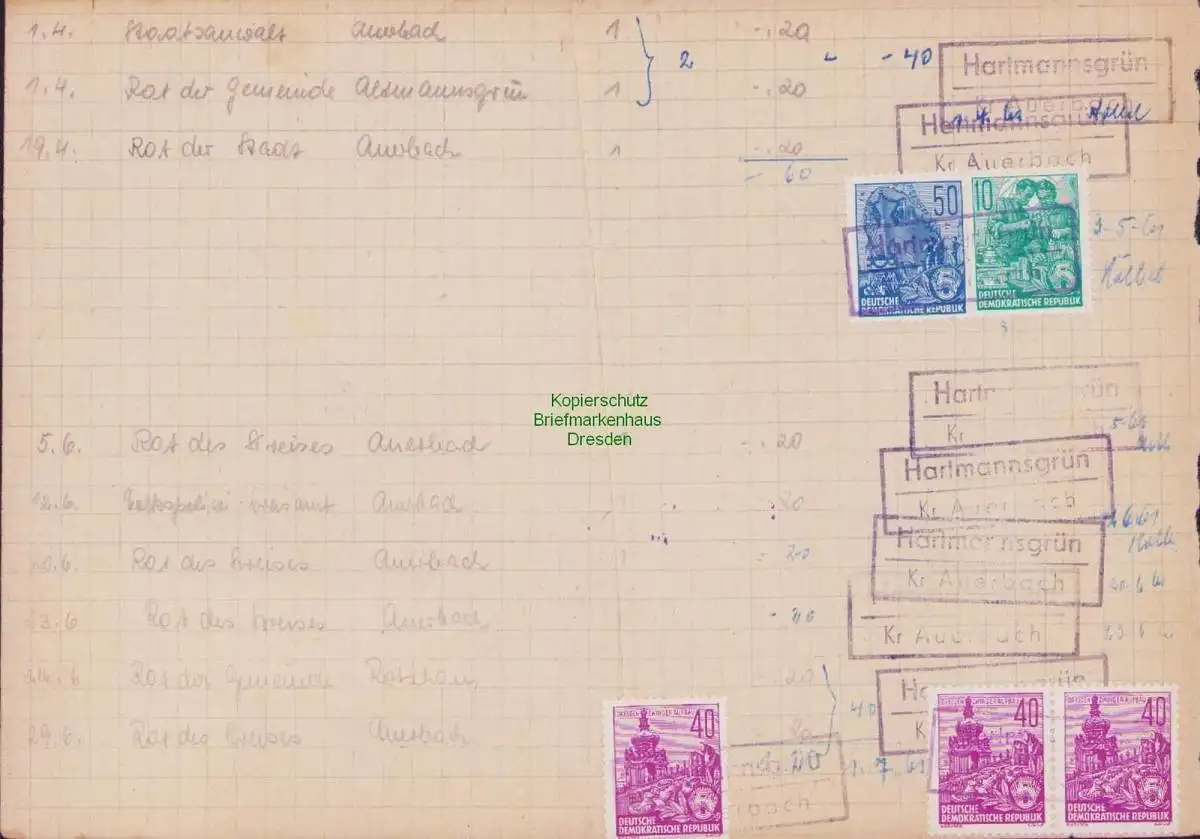 1.4. Staatsanwalt Auerbach 1 -.20
2 - -40
Hartmannsgrün
Kr Auerbach
1.4. Rat der Gemeinde Altmannsgrün 1 -.20
Hartmannsgrün
Kr Auerbach
19.4. Rat der Stadt Auerbach 1 -.20
- 60
50
DEUTSCHE
DEMOKRATISCHE REPUBLIK
10
DEUTSCHE
DEMOKRATISCHE REPUBLIK
3-5-61
Hartm grün
Kr
Kopierschutz
Briefmarkenhaus
Dresden
5.6. Rat des Kreises Auerbach -.20
Hartmannsgrün
Kr Auerbach
12.6. Auerbach 1 20
Hartmannsgrün
Kr Auerbach
20.6. Rat des Kreises Auerbach 1 - 20
20.6.61
23.6 Rat des Kreises Auerbach - 20
Kr Auerbach
24.6 Rat der Gemeinde 20
40
29.6. Rat des Kreises Auerbach 20
1.7.61
DRESDEN ZWINGER AUFBAU
40
DEUTSCHE
DEMOKRATISCHE REPUBLIK
DRESDEN ZWINGER AUFBAU
40
DEUTSCHE
DEMOKRATISCHE REPUBLIK
DRESDEN ZWINGER AUFBAU
40
DEUTSCHE
DEMOKRATISCHE REPUBLIK